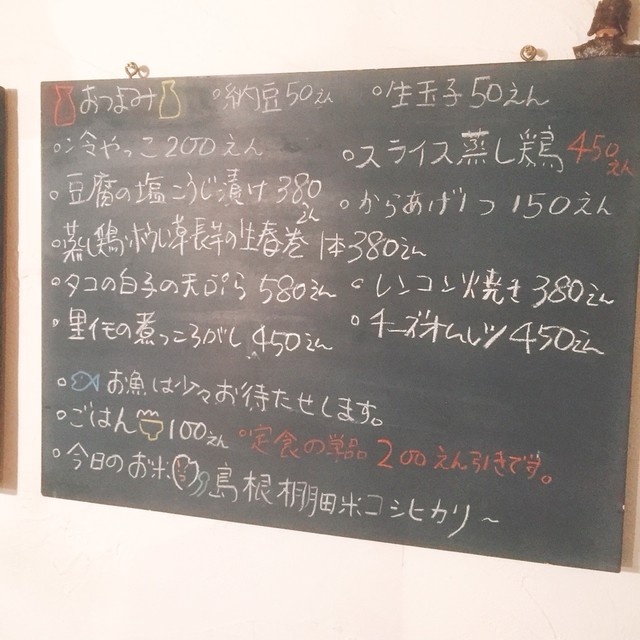 おつまみ ○納豆50えん ○生玉子50えん
○冷やっこ200えん ○スライス蒸し鶏450えん
○豆腐の塩こうじ漬け380えん ○からあげ1つ150えん
○蒸し鶏ホウレン草長芋の生春巻1本380えん
○タコの白子の天ぷら580えん ○レンコン焼き380えん
○里イモの煮っころがし450えん ○チーズオムレツ450えん
○お魚は少々お待たせします。
○ごはん100えん ○定食の単品200えん引きです。
○今日のお米 島根棚田米コシヒカリ〜